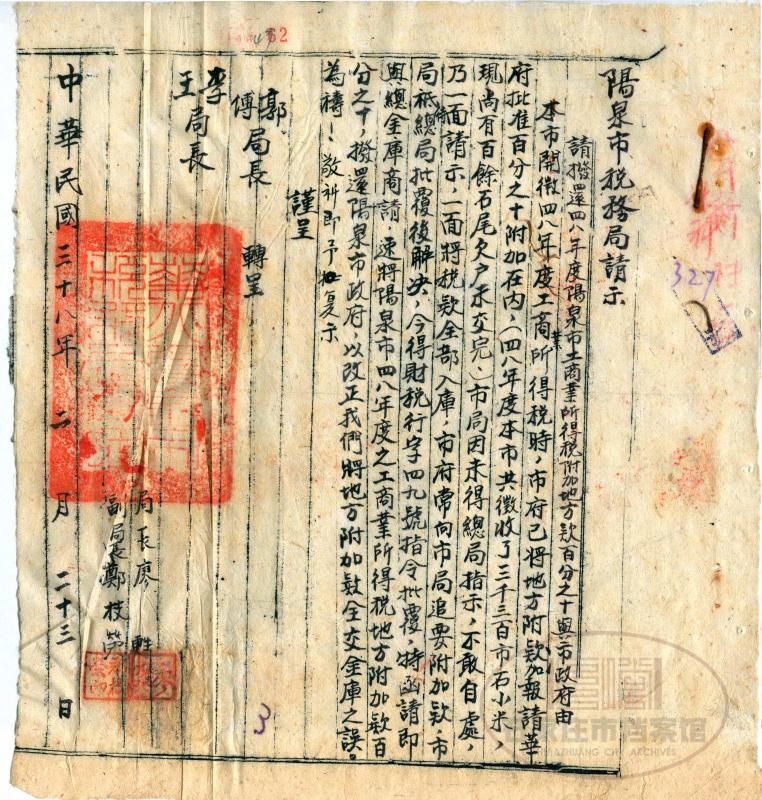 62
327
陽泉市税務局請示
請撥還四八年度陽泉市工商業所得税附加地方欵百分之十與市政府由
本市開徵四八年度工商業所得税時，市府已將地方附欵加報請華
府批准百分之十附加在内，（四八年度本市共徵收了三千三百市石小米，
現尚有百餘石尾欠户未交完，）市局因未得總局指示，不敢自處，
乃一面請示，一面將税欵全部入庫，市府常向市局追要附加欵，市
局祗總局批覆後解决，今得財税行字四九號指令批覆，特函請即
與總金庫商請，速將陽泉市四八年度之工商業所得税地方附加欵百
分之十，撥還陽泉市政府，以改正我們將地方附加欵全交金庫之誤。
為禱！敬祈即予批复示
謹呈
郭
傅局長 轉呈
李
王局長
局長廖
副局長鄭枝
中華民國三十八年二月二十三日
3
石家庄市档案馆
SHIJIAZHUANG CITY ARCHIVES